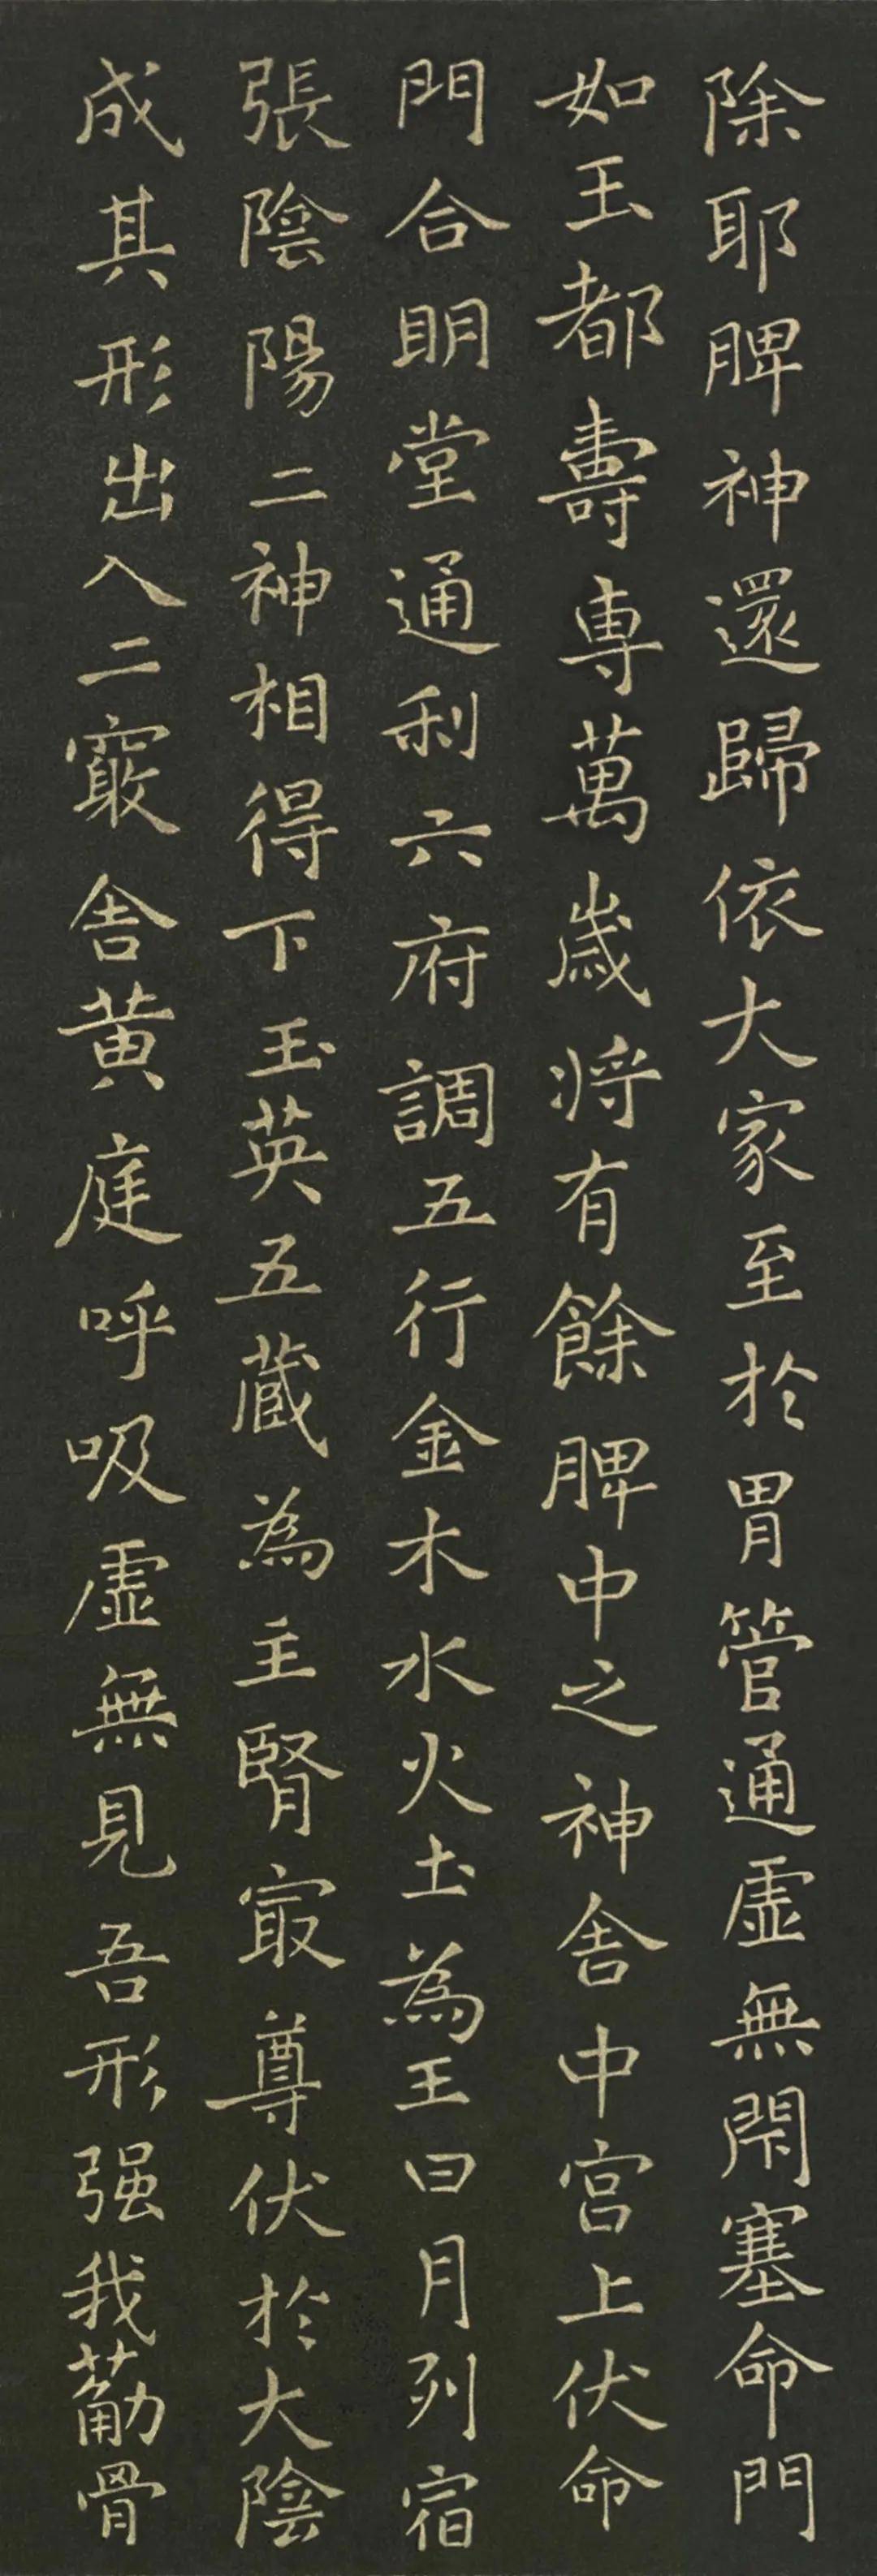 除耶脾神還歸依大家至於胃管通虛無閇塞命門
如玉都壽専萬歲将有餘脾中之神舍中宮上伏命
門合明堂通利六府調五行金木水火土為王日月列宿
張陰陽二神相得下玉英五蔵為主腎冣尊伏於大陰
成其形出入二竅舍黃庭呼吸虛無見吾形强我葋骨